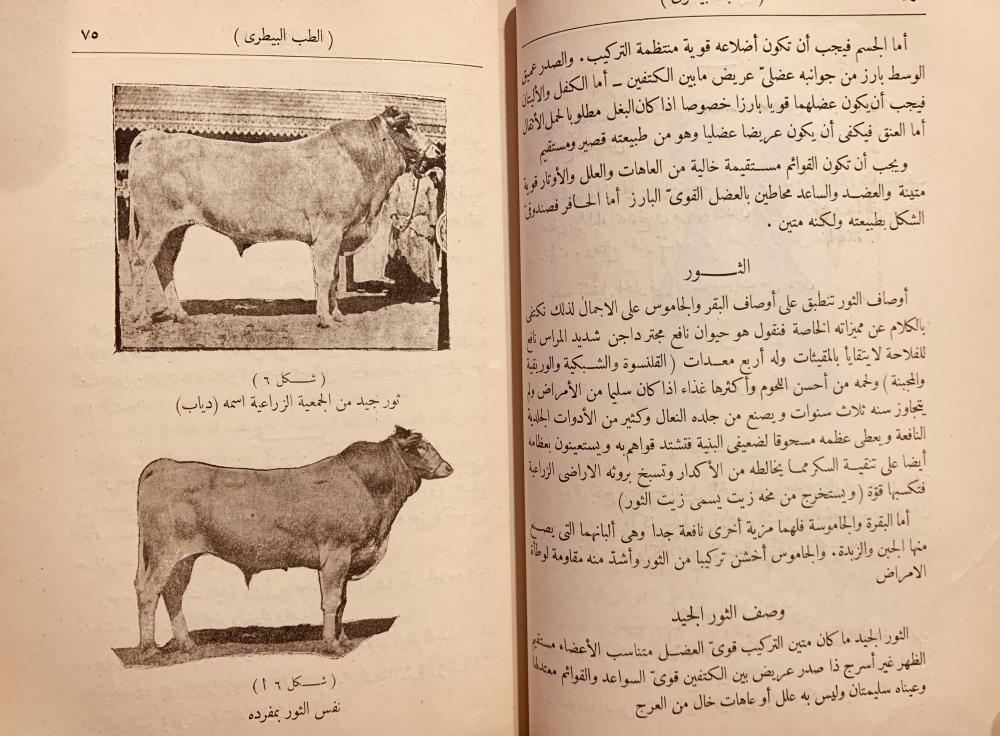 أما الجسم فيجب أن تكون أضلاعه قوية منتظمة التركيب . والصدر عميق
الوسط بارز من جوانبه عضلىّ عريض مابين الكتفين ــ أما الكفل والأليتان
فيجب أن يكون عضلهما قويا بارزا خصوصا اذا كان البغل مطلوبا لحمل الأثقال
أما العنق فيكفى أن يكون عريضا عضليا وهو من طبيعته قصير ومستقيم
ويجب أن تكون القوائم مستقيمة خالية من العاهات والعلل والأوتار قوية
متينة والعضد والساعد محاطين بالعضل القوىّ البارز أما الحافر فصندوقى
الشكل بطبيعته ولكنه متين .
الثور
أوصاف الثور تنطبق على أوصاف البقر والجاموس على الاجمال لذلك نكتفى
بالكلام عن مميزاته الخاصة فنقول هو حيوان نافع مجتر داجن شديد المراس نافع
للفلاحة لا يتقايأ بالمقيئات وله أربع معدات ( القلنسوة والشبكية والوريقية
والمجبنة ) ولحمه من أحسن اللحوم وأكثرها غذاء اذا كان سليما من الأمراض ولم
يتجاوز سنه ثلاث سنوات ويصنع من جلده النعال وكثير من الأدوات الجلدية
النافعة ويعطى عظمه مسحوقا لضعيفى البنية فتشتد قواهم به ويستعينون بعظامه
أيضا على تنقية السكر مما يخالطه من الأكدار وتسبخ بروثه الاراضى الزراعية
فتكسبها قوّة ( ويستخرج من مخه زيت يسمى زيت الثور )
أما البقرة والجاموسة فلهما مزية أخرى نافعة جدا وهى ألبانهما التى يصنع
منها الجبن والزبدة . والجاموس أخشن تركيبا من الثور وأشدّ منه مقاومة لوطأة
الامراض
وصف الثور الجيد
الثور الجيد ما كان متين التركيب قوىّ العضل متناسب الأعضاء مستقيم
الظهر غير أسرج ذا صدر عريض بين الكتفين قوىّ السواعد والقوائم معتدلها
وعيناه سليمتان وليس به علل أو عاهات خال من العرج
( الطب البيطرى ) ٧٥
( شكل ٦ )
ثور جيد من الجمعية الزراعية اسمه (دياب)
( شكل ٦ أ )
نفس الثور بمفرده